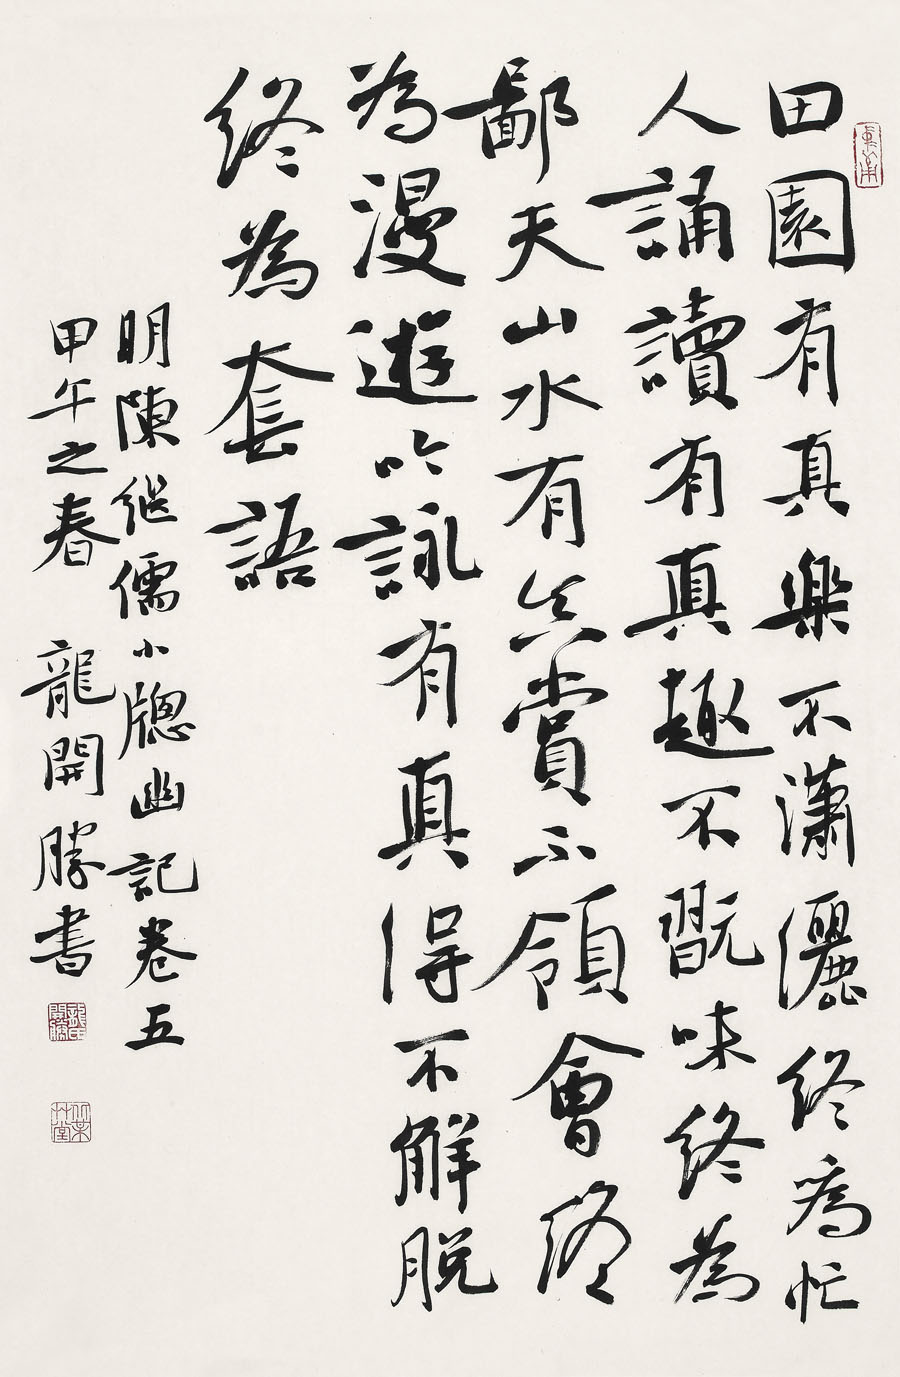 田園有真樂不瀟儷終為忙
人誦讀有真趣不翫味終為
鄙天山水有真賞不領會終
為漫遊吟詠有真得不解脱
終為套語
明陳继儒小牕幽記卷五
甲午之春 龍開勝書